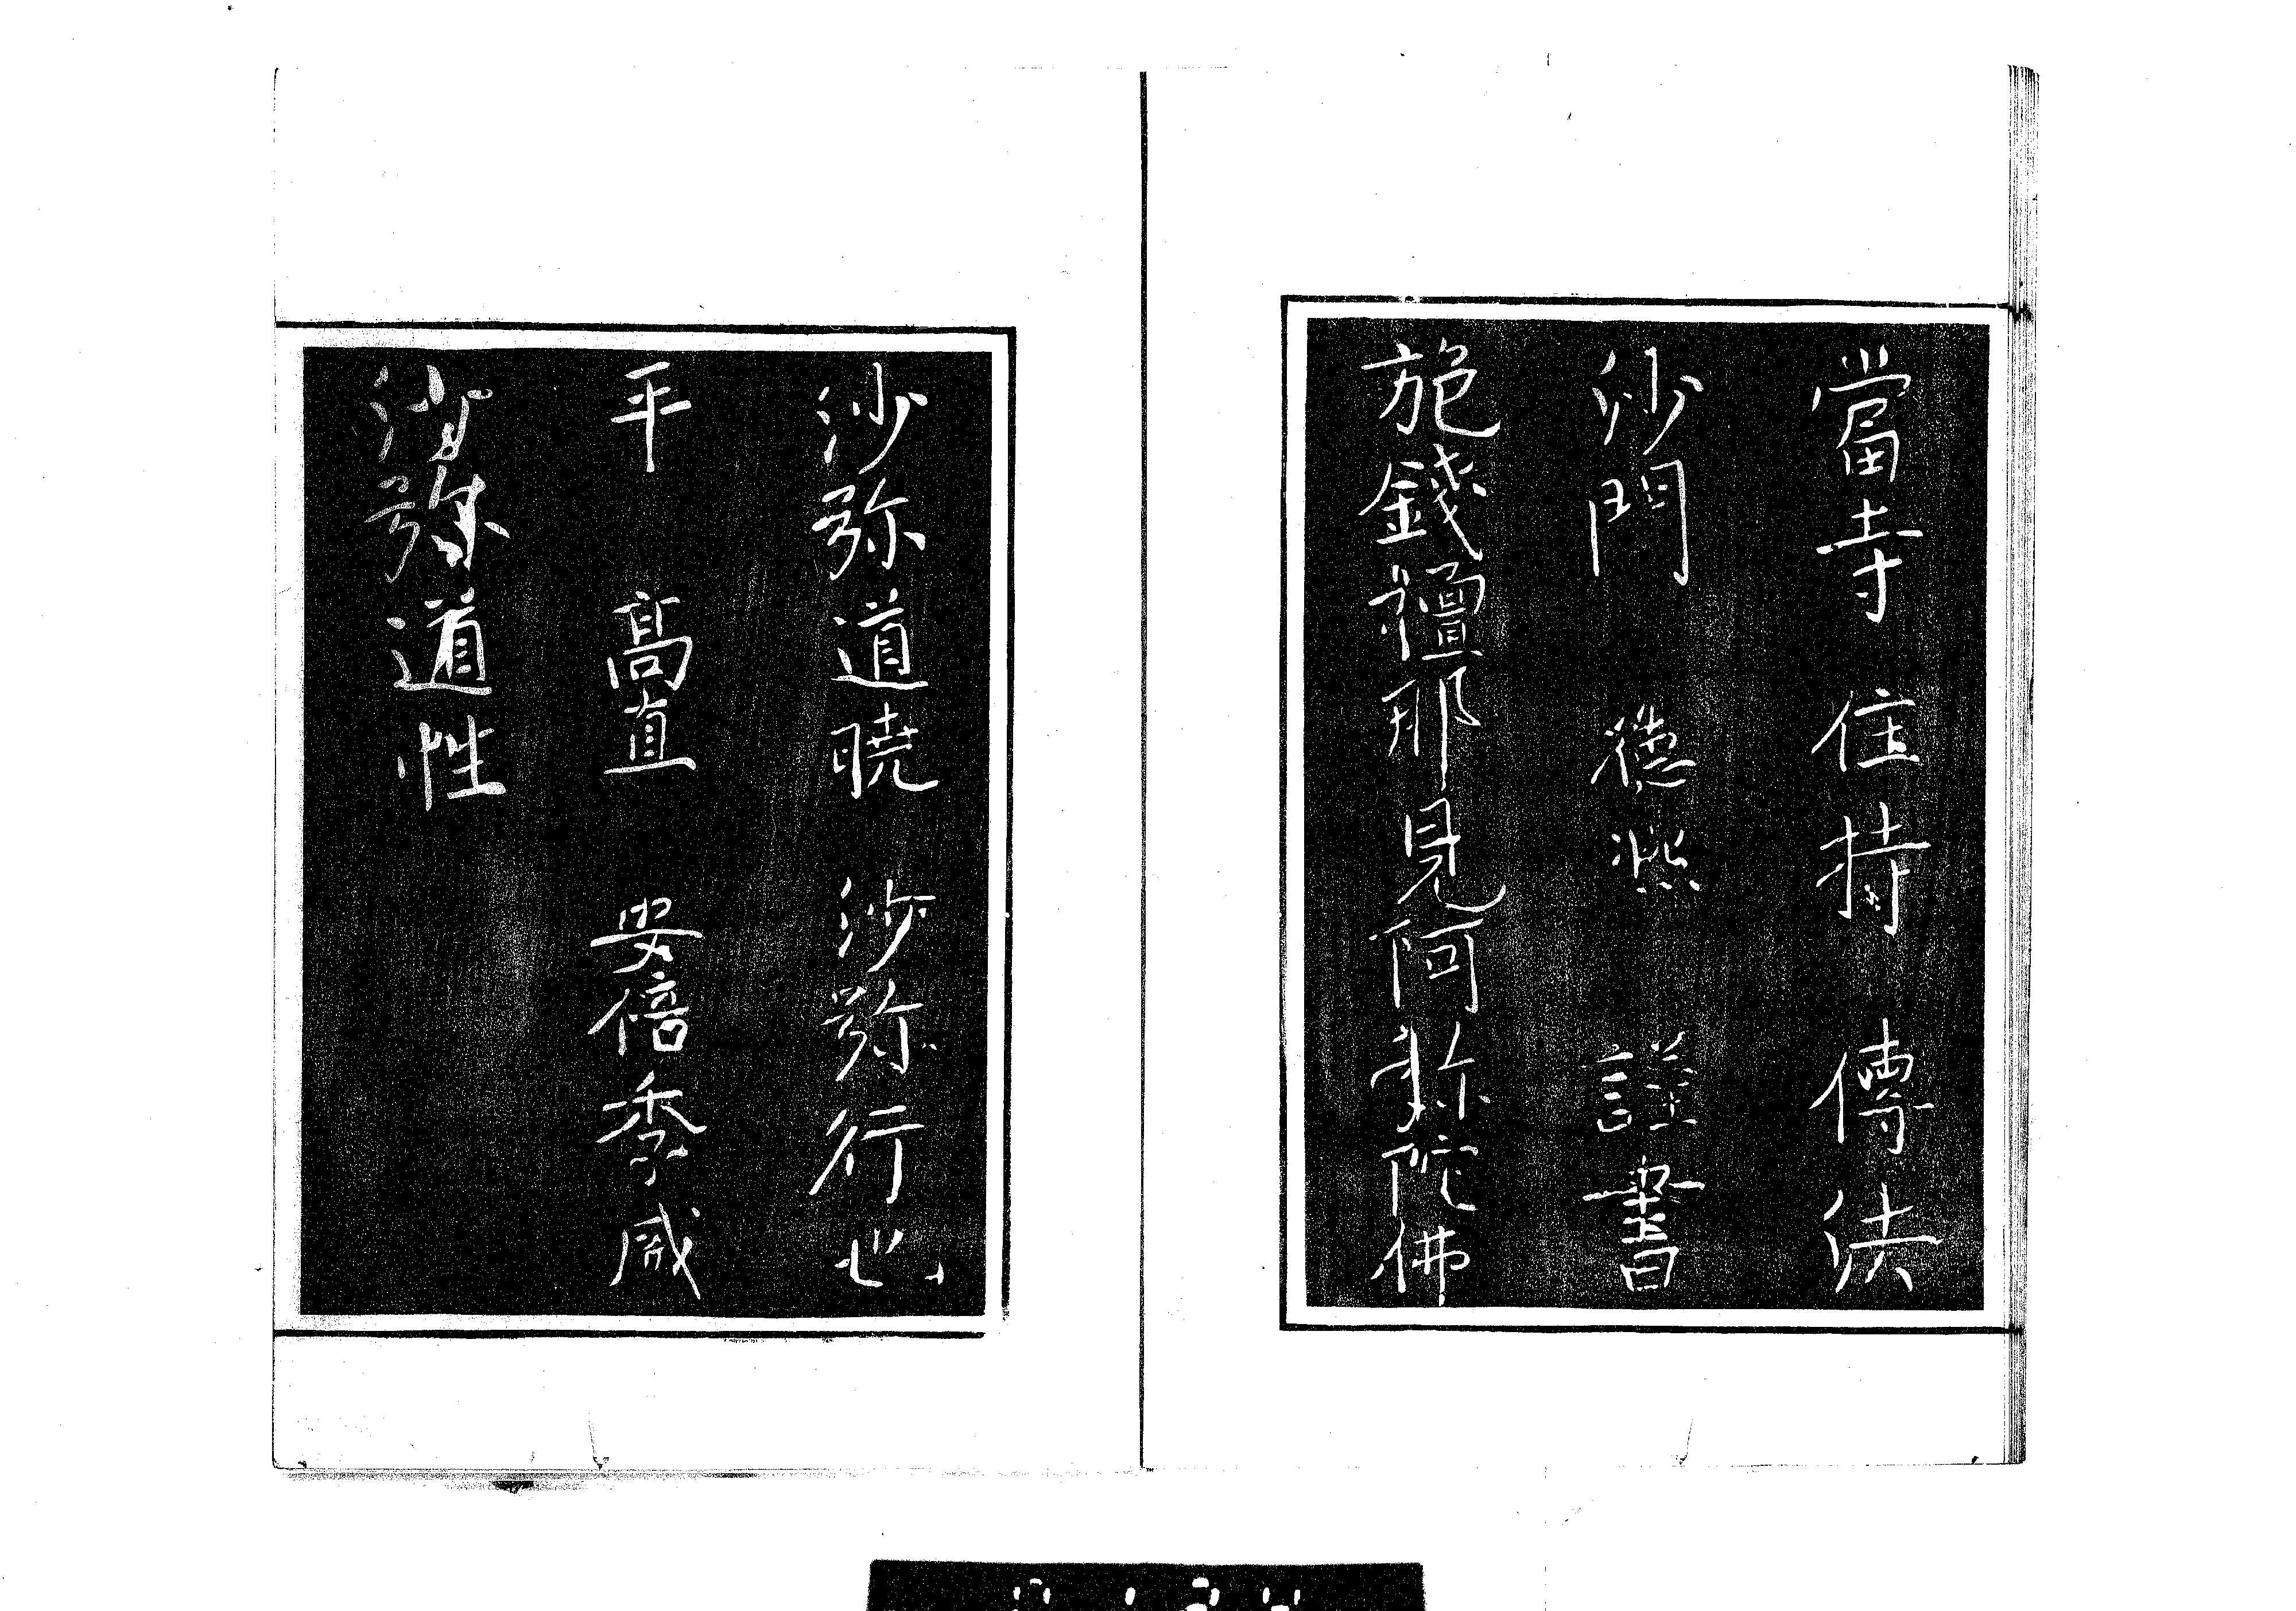 當寺住持傳法
沙門 德煕 謹書
施錢檀那見阿弥陀佛
沙弥道曉 沙弥行心
平 高直 安倍季盛
沙弥道性